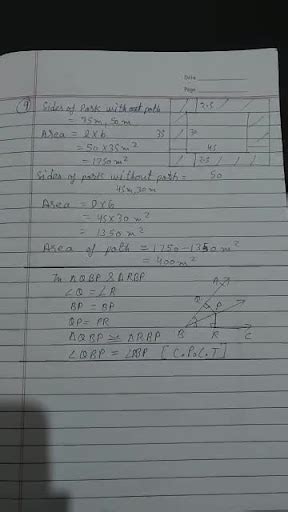 Date
Page
9 Sides of Park without path
= 35m, 50m
Area = l×b
= 50×35m²
= 1750m²
Sides of park without path =
45m, 30m
Area = l×b
= 45×30 m²
= 1350m²
Area of path = 1750-1350m²
= 400m²
2.5
35
45
2.5
50
In ΔQBP & ΔRBP
∠Q = ∠R
BP = BP
QP = PR
ΔQBP ≅ ΔRBP
∠QBP = ∠RBP [C.P.C.T]
A
Q
P
B R C